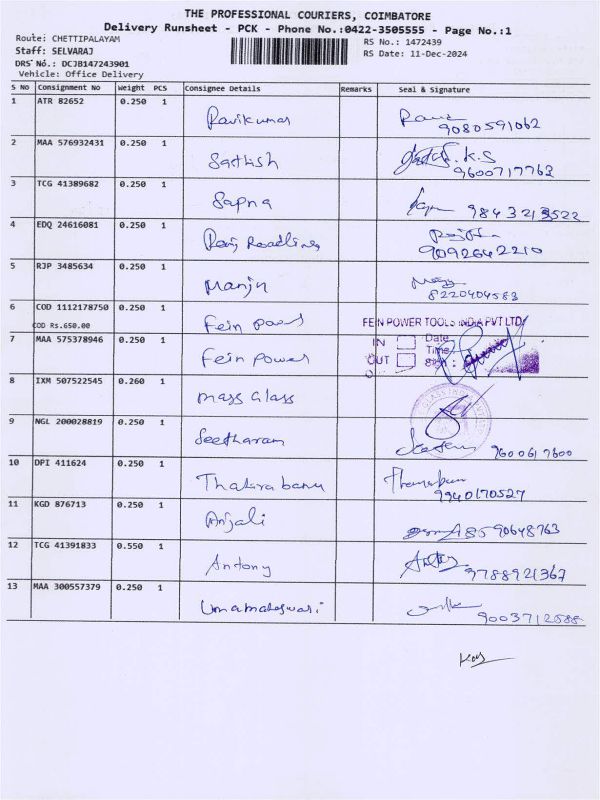 THE PROFESSIONAL COURIERS, COIMBATORE
Delivery Runsheet - PCK - Phone No.:0422-3505555 - Page No.:1
Route: CHETTIPALAYAM
RS No.: 1472439
Staff: SELVARAJ
RS Date: 11-Dec-2024
DRS No.: DCJB147243901
Vehicle: Office Delivery
S No Consignment No Weight PCS Consignee Details Remarks Seal & Signature
1 ATR 82652 0.250 1 Ravikumar 9080591062
2 MAA 576932431 0.250 1 Sathish K.S 9600717763
3 TCG 41389682 0.250 1 Sapna 9843213522
4 EDQ 24616081 0.250 1 Readlines 9092642210
5 RJP 3485634 0.250 1 Manju 8220404583
6 COD 1112178750 0.250 1 Fein
COD Rs.650.00
FEIN POWER TOOLS INDIA PVT LTD
7 MAA 575378946 0.250 1 Fein power
IN Date
OUT Time
Sign :
8 IXM 507522545 0.260 1 Mass Glass
9 NGL 200028819 0.250 1 Seetharam 9600617600
10 DPI 411624 0.250 1 Thahira banu 9940170527
11 KGD 876713 0.250 1 Anjali
12 TCG 41391833 0.550 1 Antony 9788921367
13 MAA 300557379 0.250 1 Umamaheswari